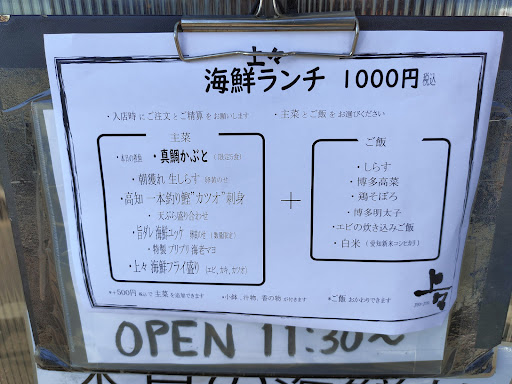 上々
海鮮ランチ 1000円 税込
・入店時 にご注文とご精算 をお願いします ・主菜 とご飯 をお選びください
主菜
・本日の煮魚 ・真鯛かぶと
・朝獲れ 生しらす
・高知 一本釣り鰹"カツオ"刺身
・天ぷら盛り合わせ
・旨ダレ 海鮮ユッケ (数量限定)
・特製 プリプリ 海老マヨ
・上々 海鮮フライ盛り (エビ、カキ、カツオ)
+
ご飯
・しらす
・博多高菜
・鶏そぼろ
・博多明太子
・エビの炊き込みご飯
・白米
*+500円 税込 で 主菜 を追加できます *小鉢、汁物、香の物 が付きます *ご飯 おかわりできます
上々
OPEN 11:30~